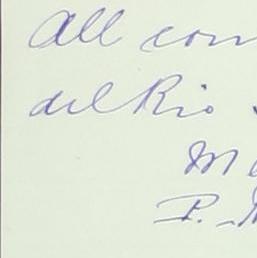 All con
del Rio
M
P.